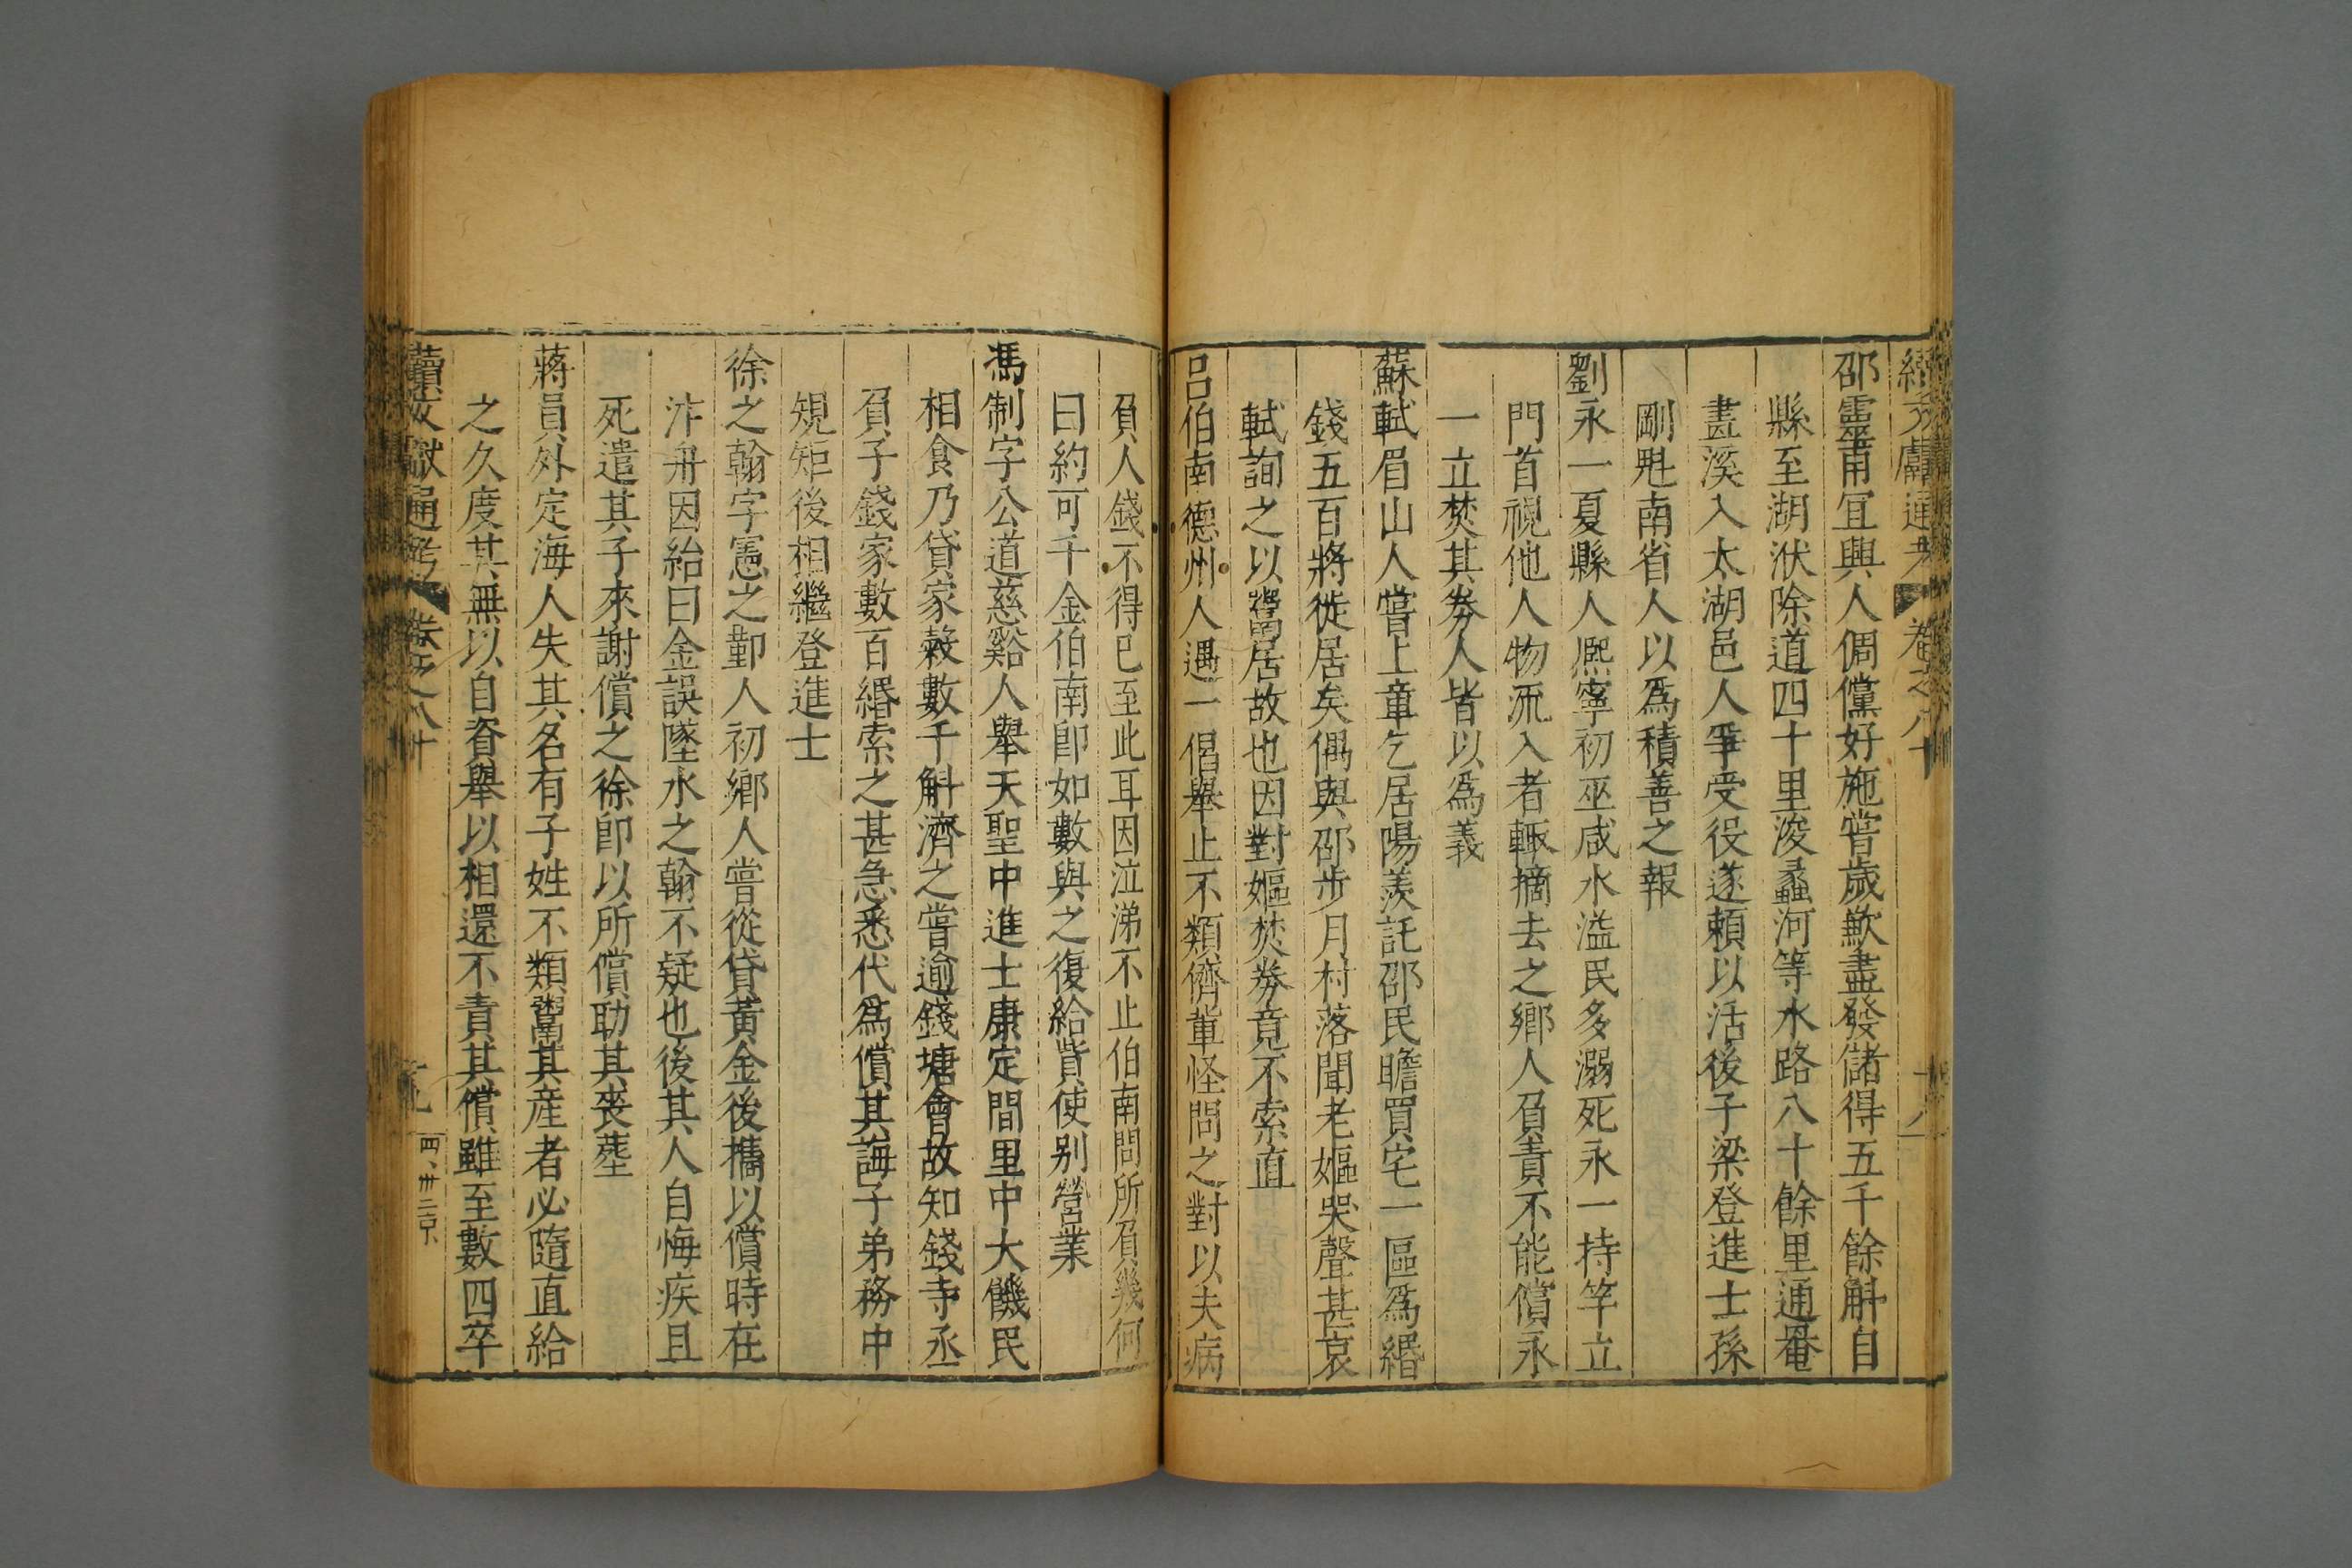 續文獻通考 卷之八十 十八
邵靈甫宜興人倜儻好施嘗歲歉盡發儲得五千餘斛自
縣至湖㳇除道四十里浚蠡河等水路八十餘里通罨
畫溪入太湖邑人爭受役遂賴以活後子梁登進士孫
剛魁南省人以爲積善之報
劉永一夏縣人熈寧初巫咸水溢民多溺死永一持竿立
門首視他人物流入者輒摘去之鄉人負責不能償永
一立焚其券人皆以爲義
蘇軾眉山人嘗上章乞居陽羨託邵民瞻買宅一區爲緡
錢五百將徙居矣偶與邵步月村落聞老嫗哭聲甚哀
軾詢之以鬻居故也因對嫗焚券竟不索直
呂伯南德州人遇一倡舉止不類儕輩怪問之對以夫病
負人錢不得已至此耳因泣涕不止伯南問所負幾何
曰約可千金伯南卽如數與之復給貲使别營業
馮制字公道慈谿人舉天聖中進士康定間里中大饑民
相食乃貸家穀數千斛濟之嘗逾錢塘會故知錢寺丞
負子錢家數百緡索之甚急悉代爲償其誨子弟務中
規矩後相繼登進士
徐之翰字憲之鄞人初鄉人嘗從貸黃金後攜以償時在
汴舟因紿曰金誤墜水之翰不疑也後其人自悔疾且
死遣其子來謝償之徐卽以所償助其喪塟
蔣員外定海人失其名有子姓不類鬻其産者必隨直給
之久度其無以自資舉以相還不責其償雖至數四卒
續文獻通考 卷之八十 十九 四卅二京